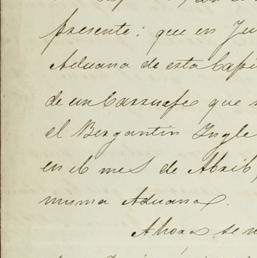 presente: que en Ju
Aduana de esta Capi
de un Carruaje que
el Bergantin Ingle
en el mes de Abril,
misma Aduana.
Ahora se